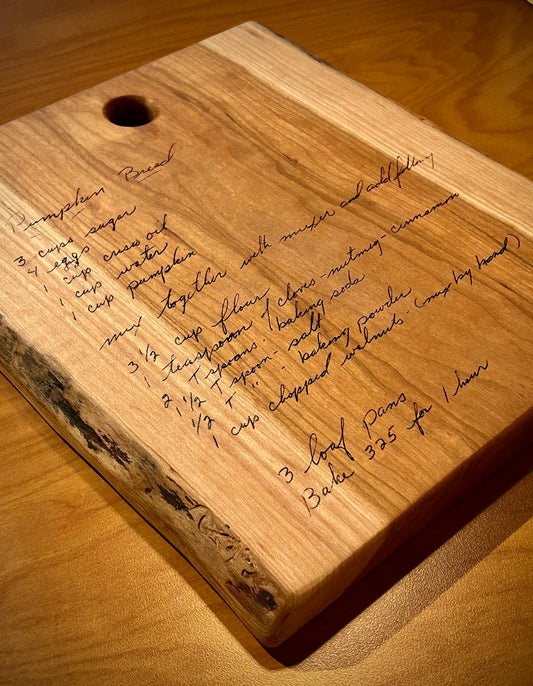 Pumpkin Bread
3 cups sugar
4 eggs
1 cup crisco oil
1 cup water
1 cup pumpkin
mix together with mixer and add following
3 1/2 cup flour
1 teaspoon / cloves - nutmeg - cinnamon
2 Tspoons. baking soda
1 1/2 Tspoon - salt
1/2 T " - baking powder
1 cup chopped walnuts - (mix by hand)
3 loaf pans
Bake 325 for 1 hour